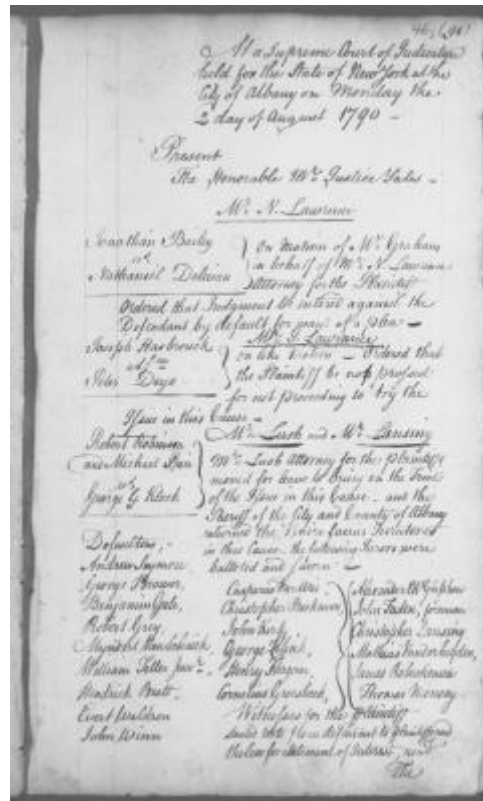 At a Supreme Court of Judicature
held for the State of New York at the
City of Albany on Monday the
2 day of August 1790 -
Present
The Honorable Mr. Justice Yates -
Mr. N. Lawrence
Jonathan Bailey
vs
Nathaniel
On Motion of Mr. Graham
in behalf of Mr. N. Lawrence
Attorney for the Plaintiff
Ordered that Judgment be entered against the
Defendant by default for want of a plea -
Mr. Lawrence
Joseph Hasbrouck
Peter Deyo
on like Motion - Ordered that
the Plaintiff be non prossed
for not proceeding to try the
Issue in this Cause -
Mr. Lush and Mr. Lansing
Robert Robinson
and Michael
vs
George G Klock
Mr. Lush Attorney for the plaintiffs
moved for leave to bring on the trial
of the Issue in this Cause - and the
Sheriff of the City and County of Albany
returned the Venire facias
in this Cause, the following Jurors were
balloted and Sworn -
Defaulters, -
Andrew
George Brower,
Benjamin
Robert Grey,
William Teller junr.
Hendrick Pruett
Evert Waldron
John Winn
Christopher
John
George
Henry
Cornelius Groesbeck,
Alexander
John Faden, foreman
Christopher Lansing
Mathias Vanderheyden,
James
Thomas
Witnesses for the plaintiff
The